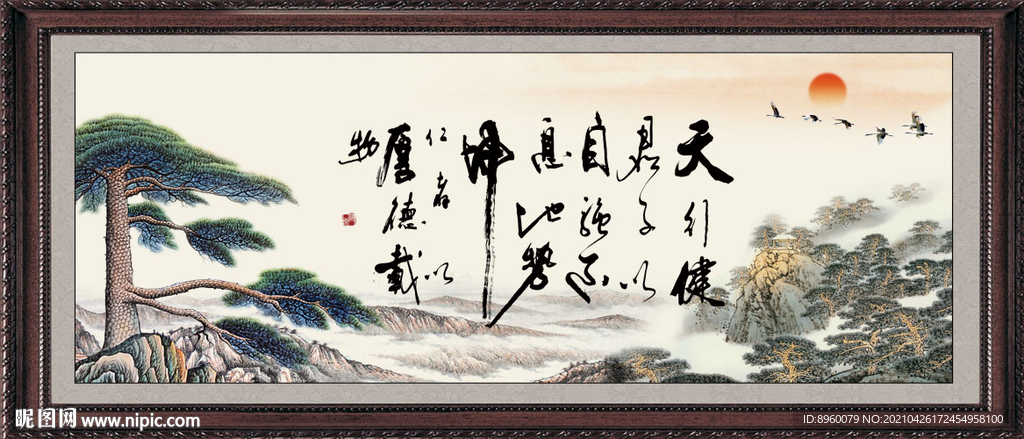 天行健
君子以
自強不
息地勢
坤
仁者以
厚德載
物
昵图网 www.nipic.com
ID:8960079 NO:20210426172454958100